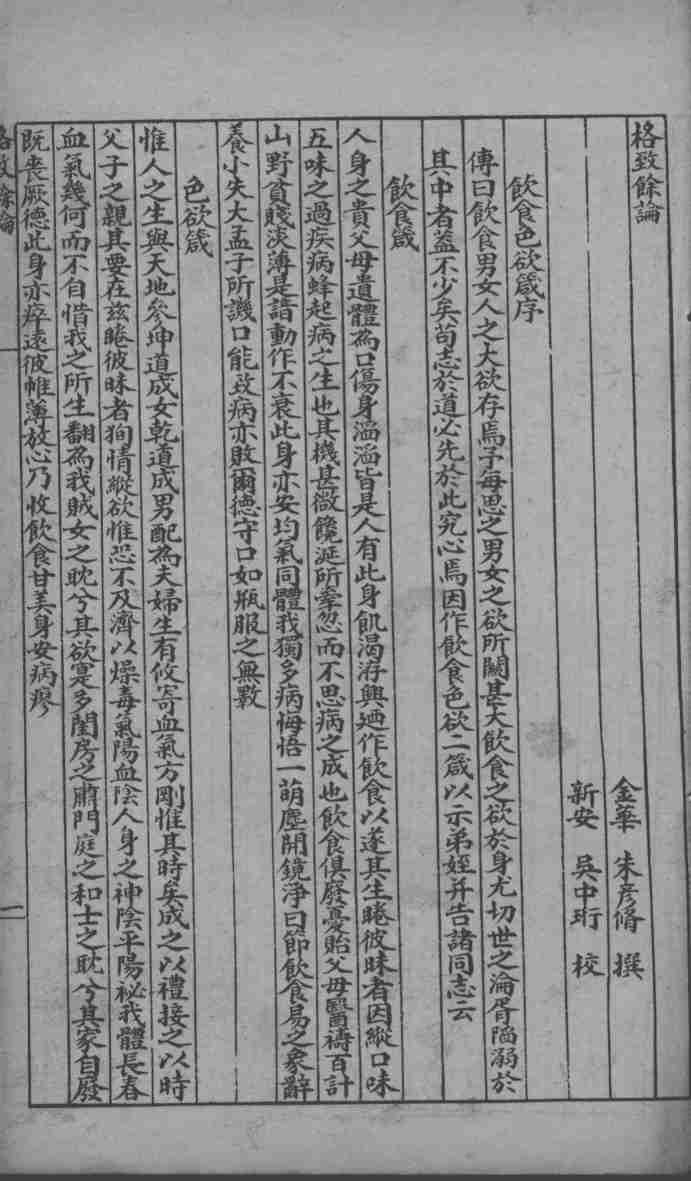 格致餘論
金華 朱彥脩 撰
新安 吳中珩 校
飲食色欲箴序
傳曰飲食男女人之大欲存焉予每思之男女之欲所關甚大飲食之欲於身尤切世之淪胥陷溺於
其中者蓋不少矣苟志於道必先於此究心焉因作飲食色欲二箴以示弟姪并告諸同志云
飲食箴
人身之貴父母遺體為口傷身滔滔皆是人有此身飢渴洊興迺作飲食以遂其生睠彼昧者因縱口味
五味之過疾病蜂起病之生也其機甚微饞涎所牽忽而不思病之成也飲食俱廢憂貽父母醫禱百計
山野貧賤淡薄是諳動作不衰此身亦安均氣同體我獨多病悔悟一萌塵開鏡淨曰節飲食易之象辭
養小失大孟子所譏口能致病亦敗爾德守口如瓶服之無斁
色欲箴
惟人之生與天地參坤道成女乾道成男配為夫婦生育攸寄血氣方剛惟其時矣成之以禮接之以時
父子之親其要在玆睠彼昧者狥情縱欲惟恐不及濟以燥毒氣陽血陰人身之神陰平陽祕我體長春
血氣幾何而不自惜我之所生翻為我賊女之耽兮其欲寔多閨房之肅門庭之和士之耽兮其家自廢
既喪厥德此身亦瘁遠彼帷薄放心乃收飲食甘美身安病瘳
格致餘論
一